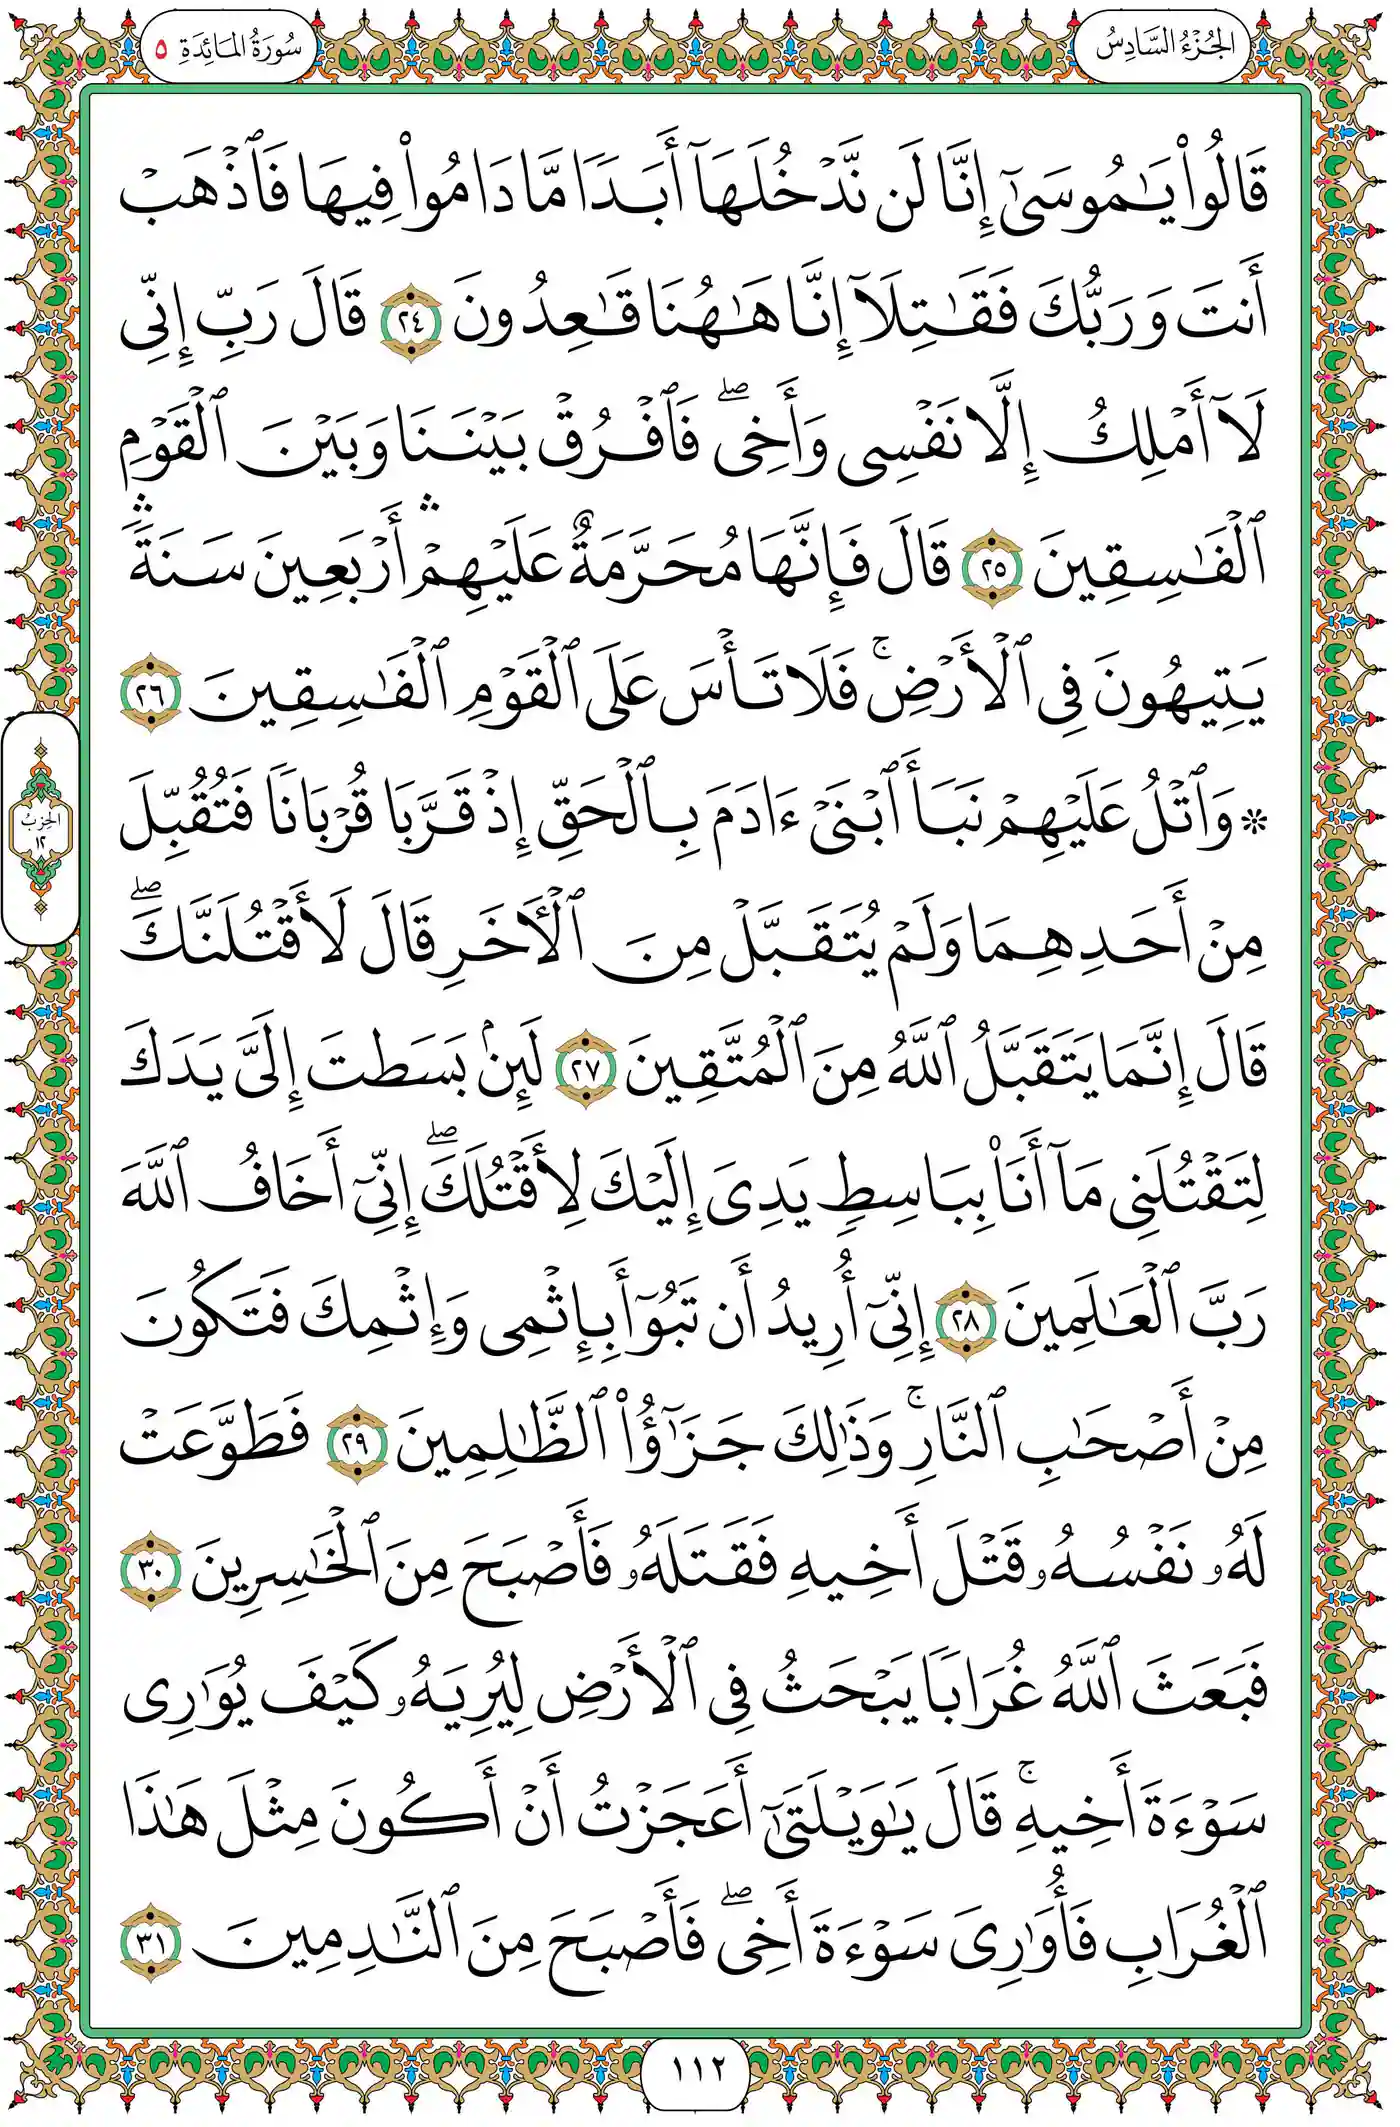 الجُزْءُ السَّادِسُ
سُورَةُ المَائِدَةِ ٥
قَالُوا۟ يَـٰمُوسَىٰٓ إِنَّا لَن نَّدْخُلَهَآ أَبَدًا مَّا دَامُوا۟ فِيهَا فَٱذْهَبْ
أَنتَ وَرَبُّكَ فَقَـٰتِلَآ إِنَّا هَـٰهُنَا قَـٰعِدُونَ ٢٤ قَالَ رَبِّ إِنِّى
لَآ أَمْلِكُ إِلَّا نَفْسِى وَأَخِى ۖ فَٱفْرُقْ بَيْنَنَا وَبَيْنَ ٱلْقَوْمِ
ٱلْفَـٰسِقِينَ ٢٥ قَالَ فَإِنَّهَا مُحَرَّمَةٌ عَلَيْهِمْ ۛ أَرْبَعِينَ سَنَةً ۛ
يَتِيهُونَ فِى ٱلْأَرْضِ ۚ فَلَا تَأْسَ عَلَى ٱلْقَوْمِ ٱلْفَـٰسِقِينَ ٢٦
۞ وَٱتْلُ عَلَيْهِمْ نَبَأَ ٱبْنَىْ ءَادَمَ بِٱلْحَقِّ إِذْ قَرَّبَا قُرْبَانًا فَتُقُبِّلَ
مِنْ أَحَدِهِمَا وَلَمْ يُتَقَبَّلْ مِنَ ٱلْـَٔاخَرِ قَالَ لَأَقْتُلَنَّكَ ۖ
قَالَ إِنَّمَا يَتَقَبَّلُ ٱللَّهُ مِنَ ٱلْمُتَّقِينَ ٢٧ لَئِنۢ بَسَطتَ إِلَىَّ يَدَكَ
لِتَقْتُلَنِى مَآ أَنَا۠ بِبَاسِطٍ يَدِىَ إِلَيْكَ لِأَقْتُلَكَ ۖ إِنِّىٓ أَخَافُ ٱللَّهَ
رَبَّ ٱلْعَـٰلَمِينَ ٢٨ إِنِّىٓ أُرِيدُ أَن تَبُوٓأَ بِإِثْمِى وَإِثْمِكَ فَتَكُونَ
مِنْ أَصْحَـٰبِ ٱلنَّارِ ۚ وَذَٰلِكَ جَزَٰٓؤُا۟ ٱلظَّـٰلِمِينَ ٢٩ فَطَوَّعَتْ
لَهُۥ نَفْسُهُۥ قَتْلَ أَخِيهِ فَقَتَلَهُۥ فَأَصْبَحَ مِنَ ٱلْخَـٰسِرِينَ ٣٠
فَبَعَثَ ٱللَّهُ غُرَابًا يَبْحَثُ فِى ٱلْأَرْضِ لِيُرِيَهُۥ كَيْفَ يُوَٰرِى
سَوْءَةَ أَخِيهِ ۚ قَالَ يَـٰوَيْلَتَىٰٓ أَعَجَزْتُ أَنْ أَكُونَ مِثْلَ هَـٰذَا
ٱلْغُرَابِ فَأُوَٰرِىَ سَوْءَةَ أَخِى ۖ فَأَصْبَحَ مِنَ ٱلنَّـٰدِمِينَ ٣١
الحِزْبُ
١٢
١١٢